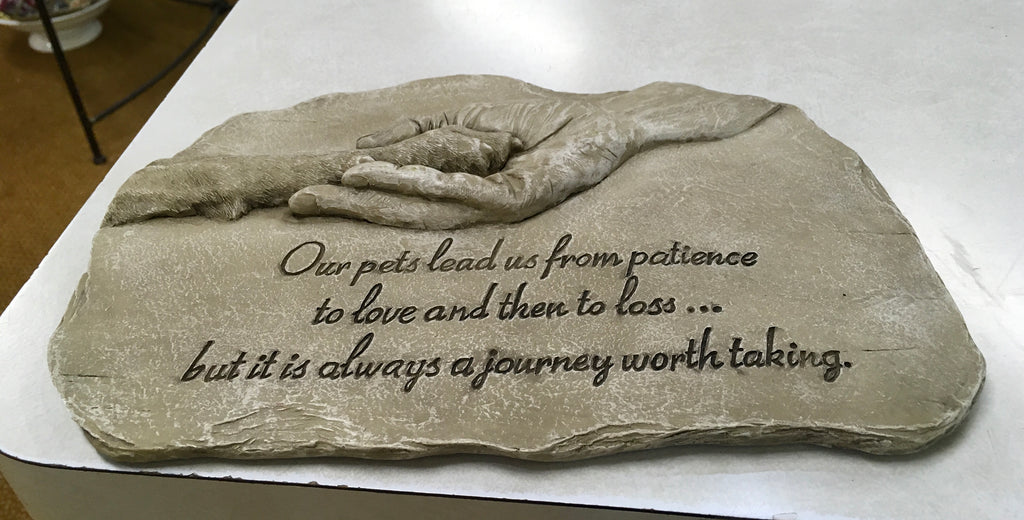 Our pets lead us from patience
to love and then to loss ...
but it is always a journey worth taking.